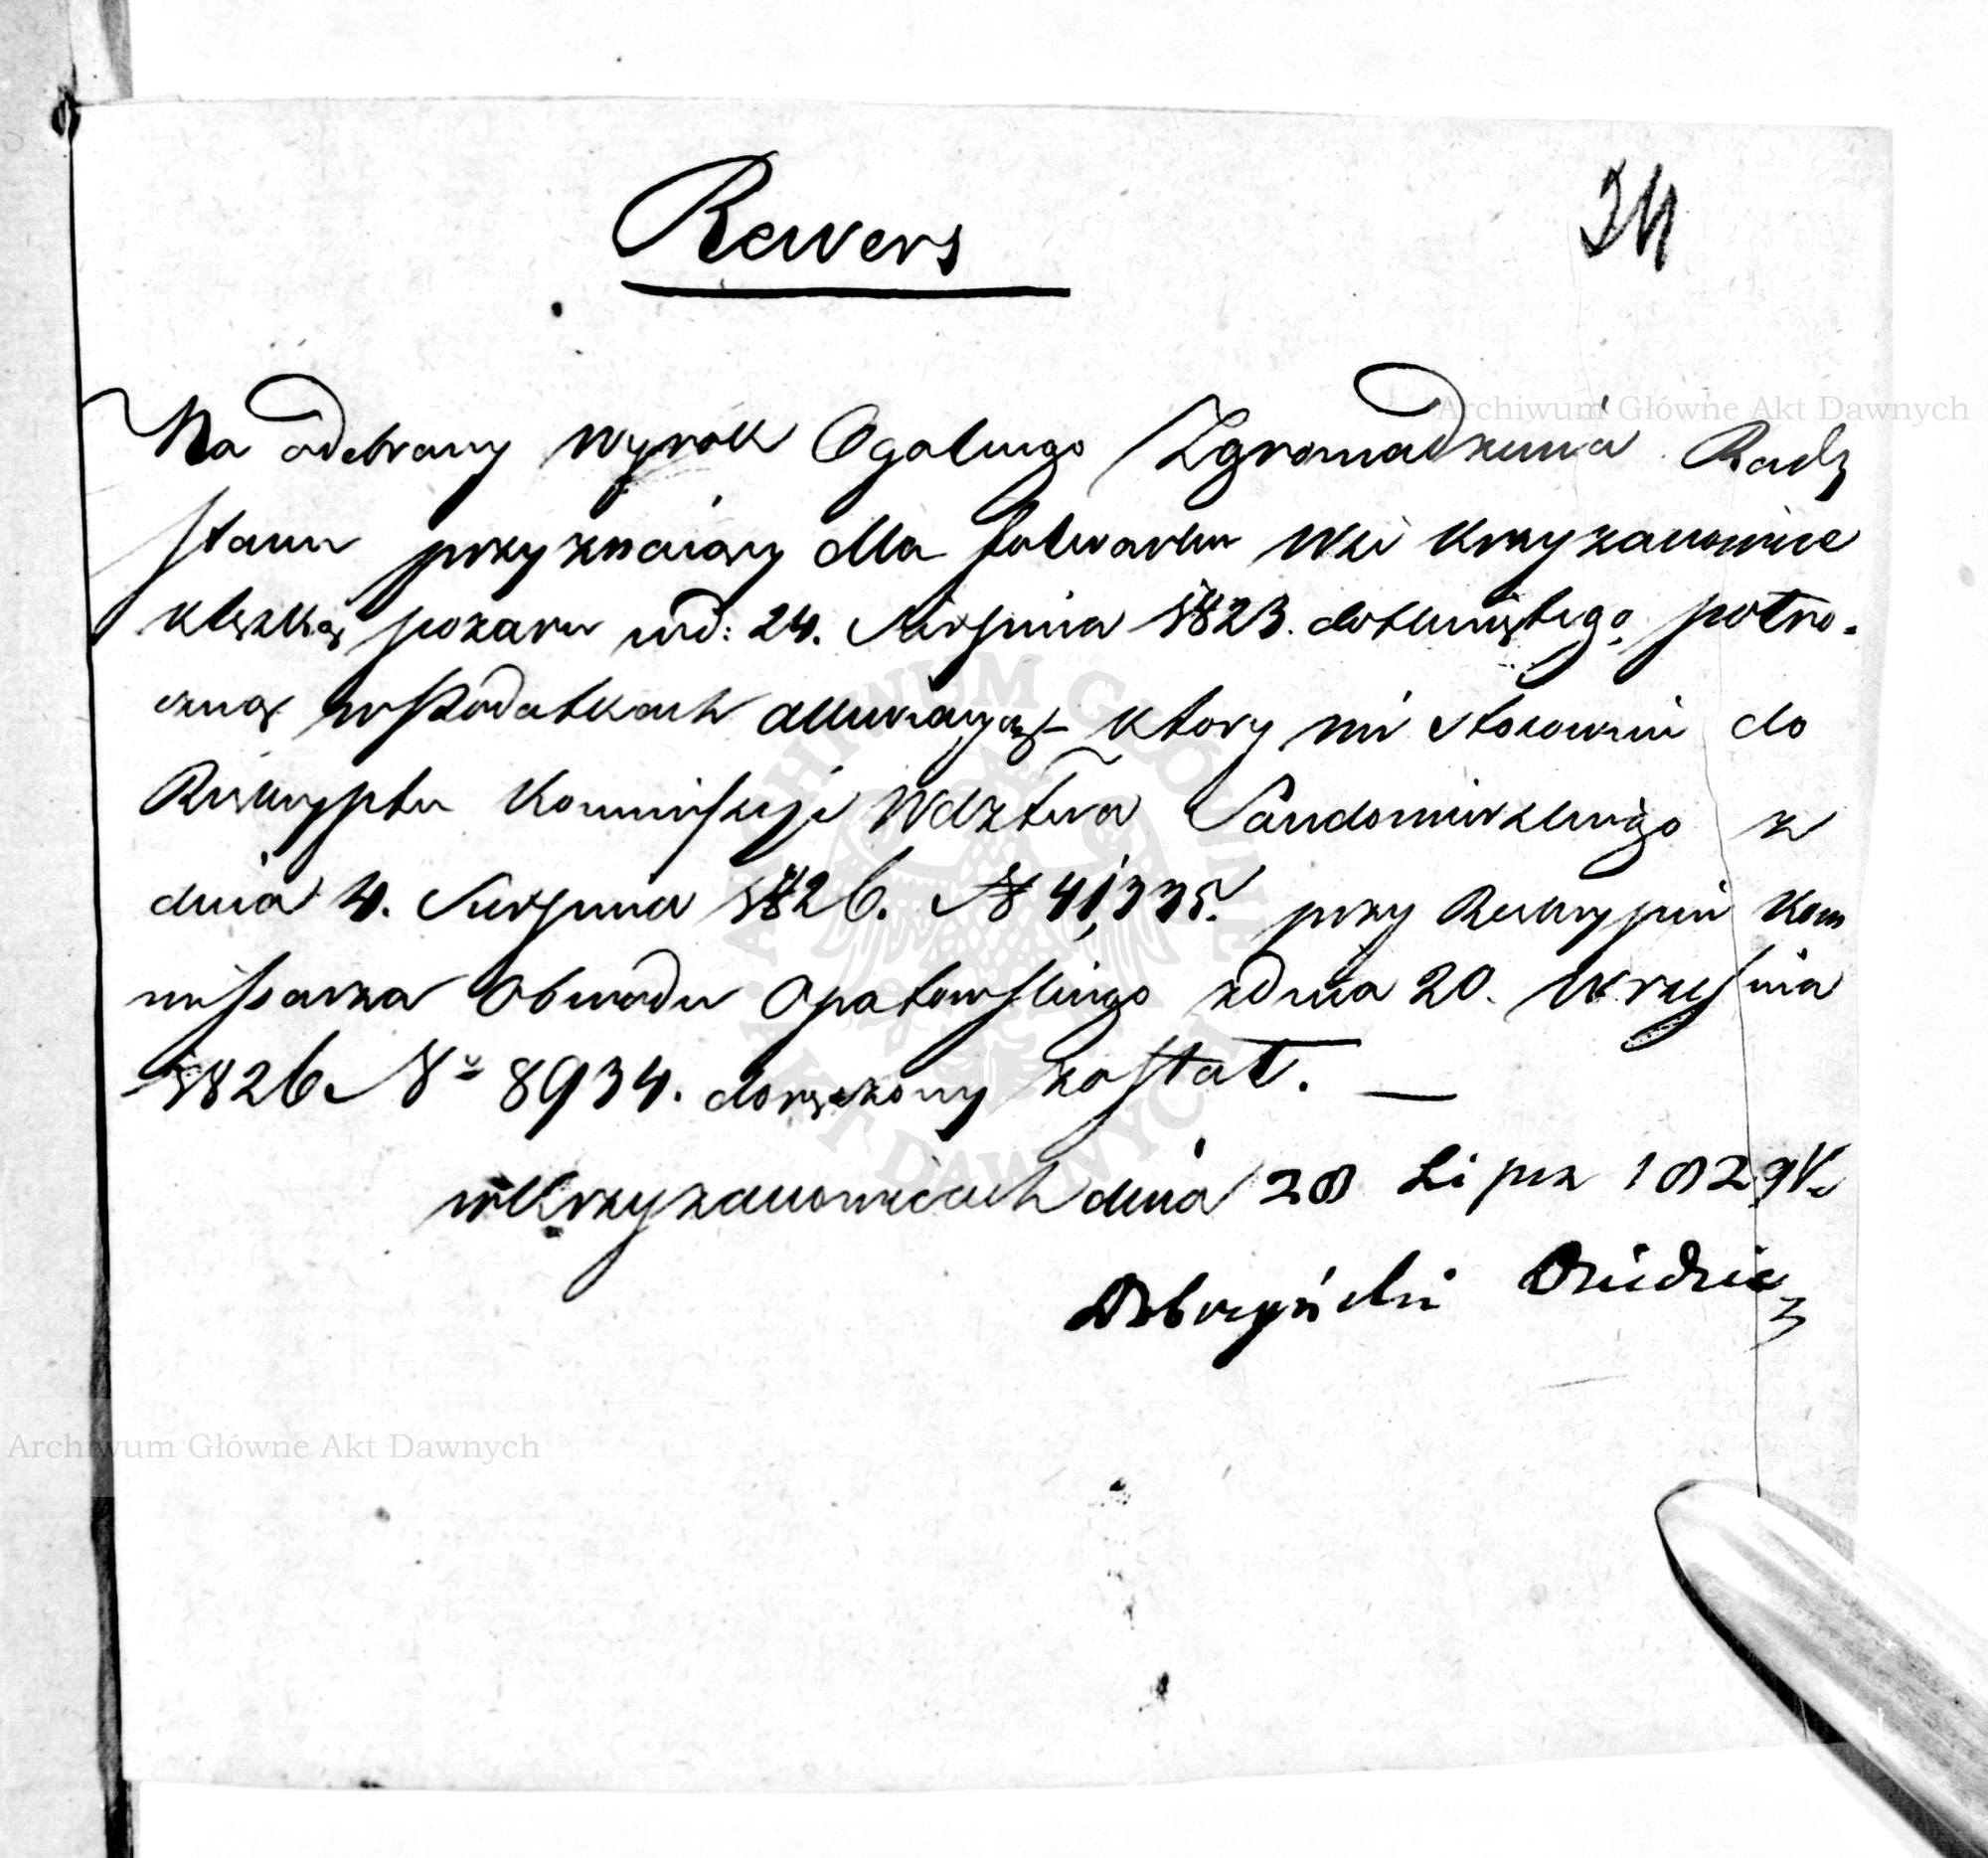 Rewers
24
Na odebrany Wyrok Ogolnego Zgromadzenia Rady
Stanu przyznaiący dla folwarku Wsi Krzyzanowice
klęską pozaru wd: 24. Sierpnia 1823. dotkniętego, potro-
czną w Podatkach allewiacyą ktory mi stosownie do
Reskryptu Kommissyi Wdztwa Sandomirskiego z
dnia 4. Sierpnia 1826. N 41,335. przy Reskrypcie Kom
missarza Obwodu Opatowskiego z dnia 20. Wrzesnia
1826 No 8934. doręczony został. —
w Krzyzanowicach dnia 28 Lipca 1829 r.
Dobrzyński Dziedzic
Archiwum Główne Akt Dawnych
Archiwum Główne Akt Dawnych
ARCHIWUM GŁÓWNE AKT DAWNYCH